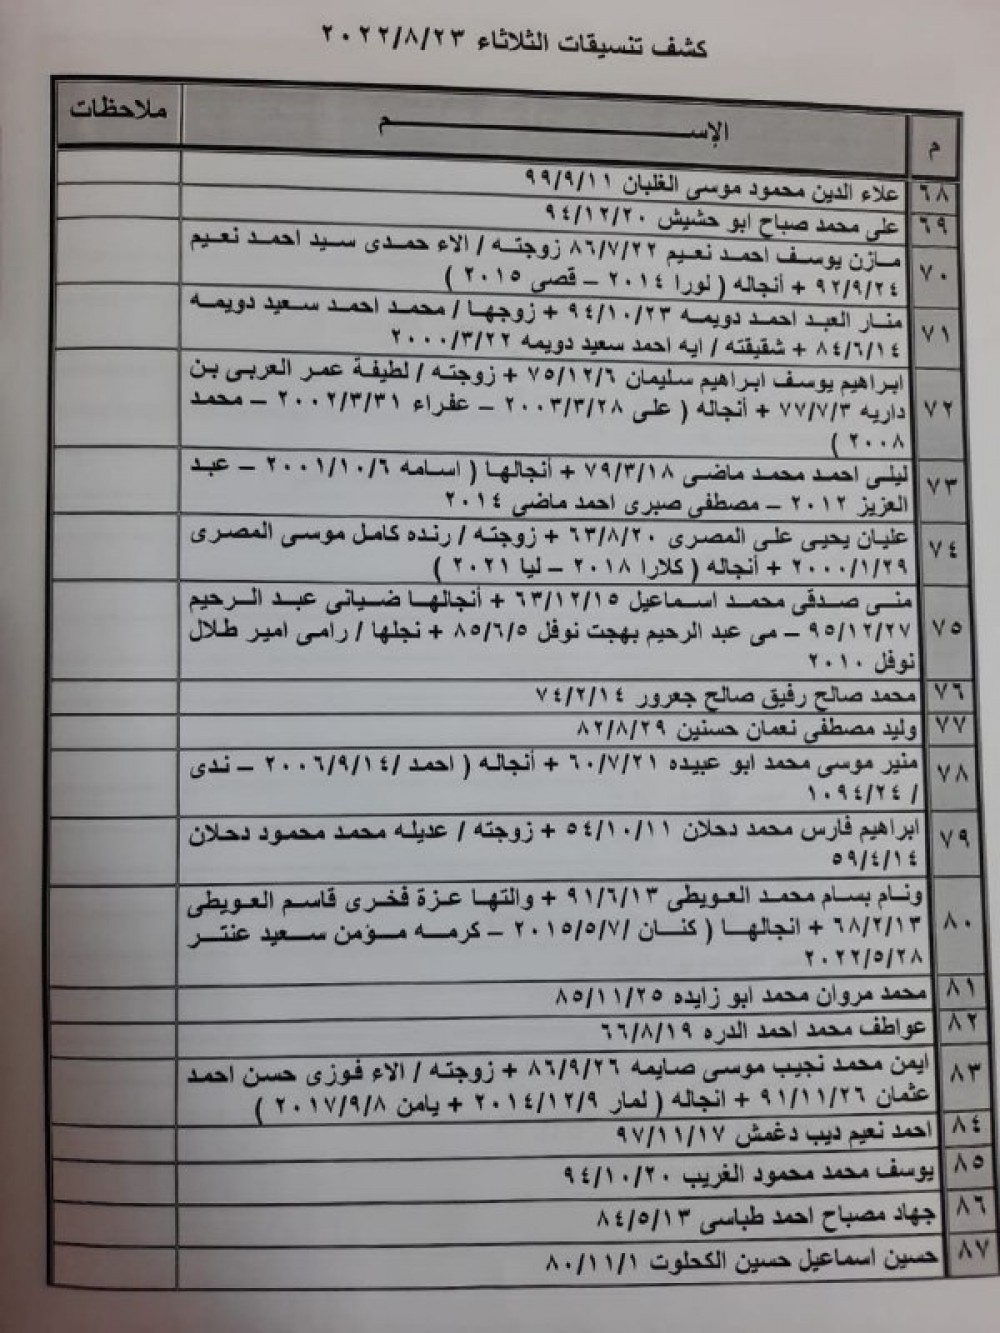 كشف تنسيقات الثلاثاء ٢٠٢٢/٨/٢٣
م الإســـم ملاحظات
٦٨ علاء الدين محمود موسى الغلبان ٩٩/٩/١١
٦٩ على محمد صباح ابو حشيش ٩٤/١٢/٢٠
٧٠ مازن يوسف احمد نعيم ٨٦/٧/٢٢ زوجته / الاء حمدى سيد احمد نعيم
٩٢/٩/٢٤ + أنجاله ( لورا ٢٠١٤ – قصى ٢٠١٥ )
٧١ منار العبد احمد دويمه ٩٤/١٠/٢٣ + زوجها / محمد احمد سعيد دويمه
٨٤/٦/١٤ + شقيقته / ايه احمد سعيد دويمه ٢٠٠٠/٣/٢٢
٧٢ ابراهيم يوسف ابراهيم سليمان ٧٥/١٢/٦ + زوجته / لطيفة عمر العربى بن
داريه ٧٧/٧/٣ + أنجاله ( على ٢٠٠٣/٣/٢٨ – عفراء ٢٠٠٢/٣/٣١ – محمد
٢٠٠٨ )
٧٣ ليلى احمد محمد ماضى ٧٩/٣/١٨ + أنجالها ( اسامه ٢٠٠١/١٠/٦ – عبد
العزيز ٢٠١٢ – مصطفى صبرى احمد ماضى ٢٠١٤
٧٤ عليان يحيى على المصرى ٦٣/٨/٢٠ + زوجته / رنده كامل موسى المصرى
٢٠٠٠/١/٢٩ + أنجاله ( كلارا ٢٠١٨ – ليا ٢٠٢١ )
٧٥ منى صدقى محمد اسماعيل ٦٣/١٢/١٥ + أنجالها ضيائى عبد الرحيم
٩٥/١٢/٢٧ – مى عبد الرحيم بهجت نوفل ٨٥/٦/٥ + نجلها / رامى امير طلال
نوفل ٢٠١٠
٧٦ محمد صالح رفيق صالح جعرور ٧٤/٢/١٤
٧٧ وليد مصطفى نعمان حسنين ٨٢/٨/٢٩
٧٨ منير موسى محمد ابو عبيده ٦٠/٧/٢١ + أنجاله ( احمد /٢٠٠٦/٩/١٤ – ندى
/ ١٠٩٤/٢٤
٧٩ ابراهيم فارس محمد دحلان ٥٤/١٠/١١ + زوجته / عديله محمد محمود دحلان
٥٩/٤/١٤
٨٠ ونام بسام محمد العويطى ٩١/٦/١٣ + والتها عزة فخرى قاسم العويطى
٦٨/٢/١٣ + انجالها ( كنان /٢٠١٥/٥/٧ – كرمه مؤمن سعيد عنتر
٢٠٢٢/٥/٢٨
٨١ محمد مروان محمد ابو زايده ٨٥/١١/٢٥
٨٢ عواطف محمد احمد الدره ٦٦/٨/١٩
٨٣ ايمن محمد نجيب موسى صايمه ٨٦/٩/٢٦ + زوجته / الاء فوزى حسن احمد
عثمان ٩١/١١/٢٦ + انجاله ( لمار ٢٠١٤/١٢/٩ + يامن ٢٠١٧/٩/٨ )
٨٤ احمد نعيم ديب دغمش ٩٧/١١/١٧
٨٥ يوسف محمد محمود الغريب ٩٤/١٠/٢٠
٨٦ جهاد مصباح احمد طباسى ٨٤/٥/١٣
٨٧ حسين اسماعيل حسين الكحلوت ٨٠/١١/١